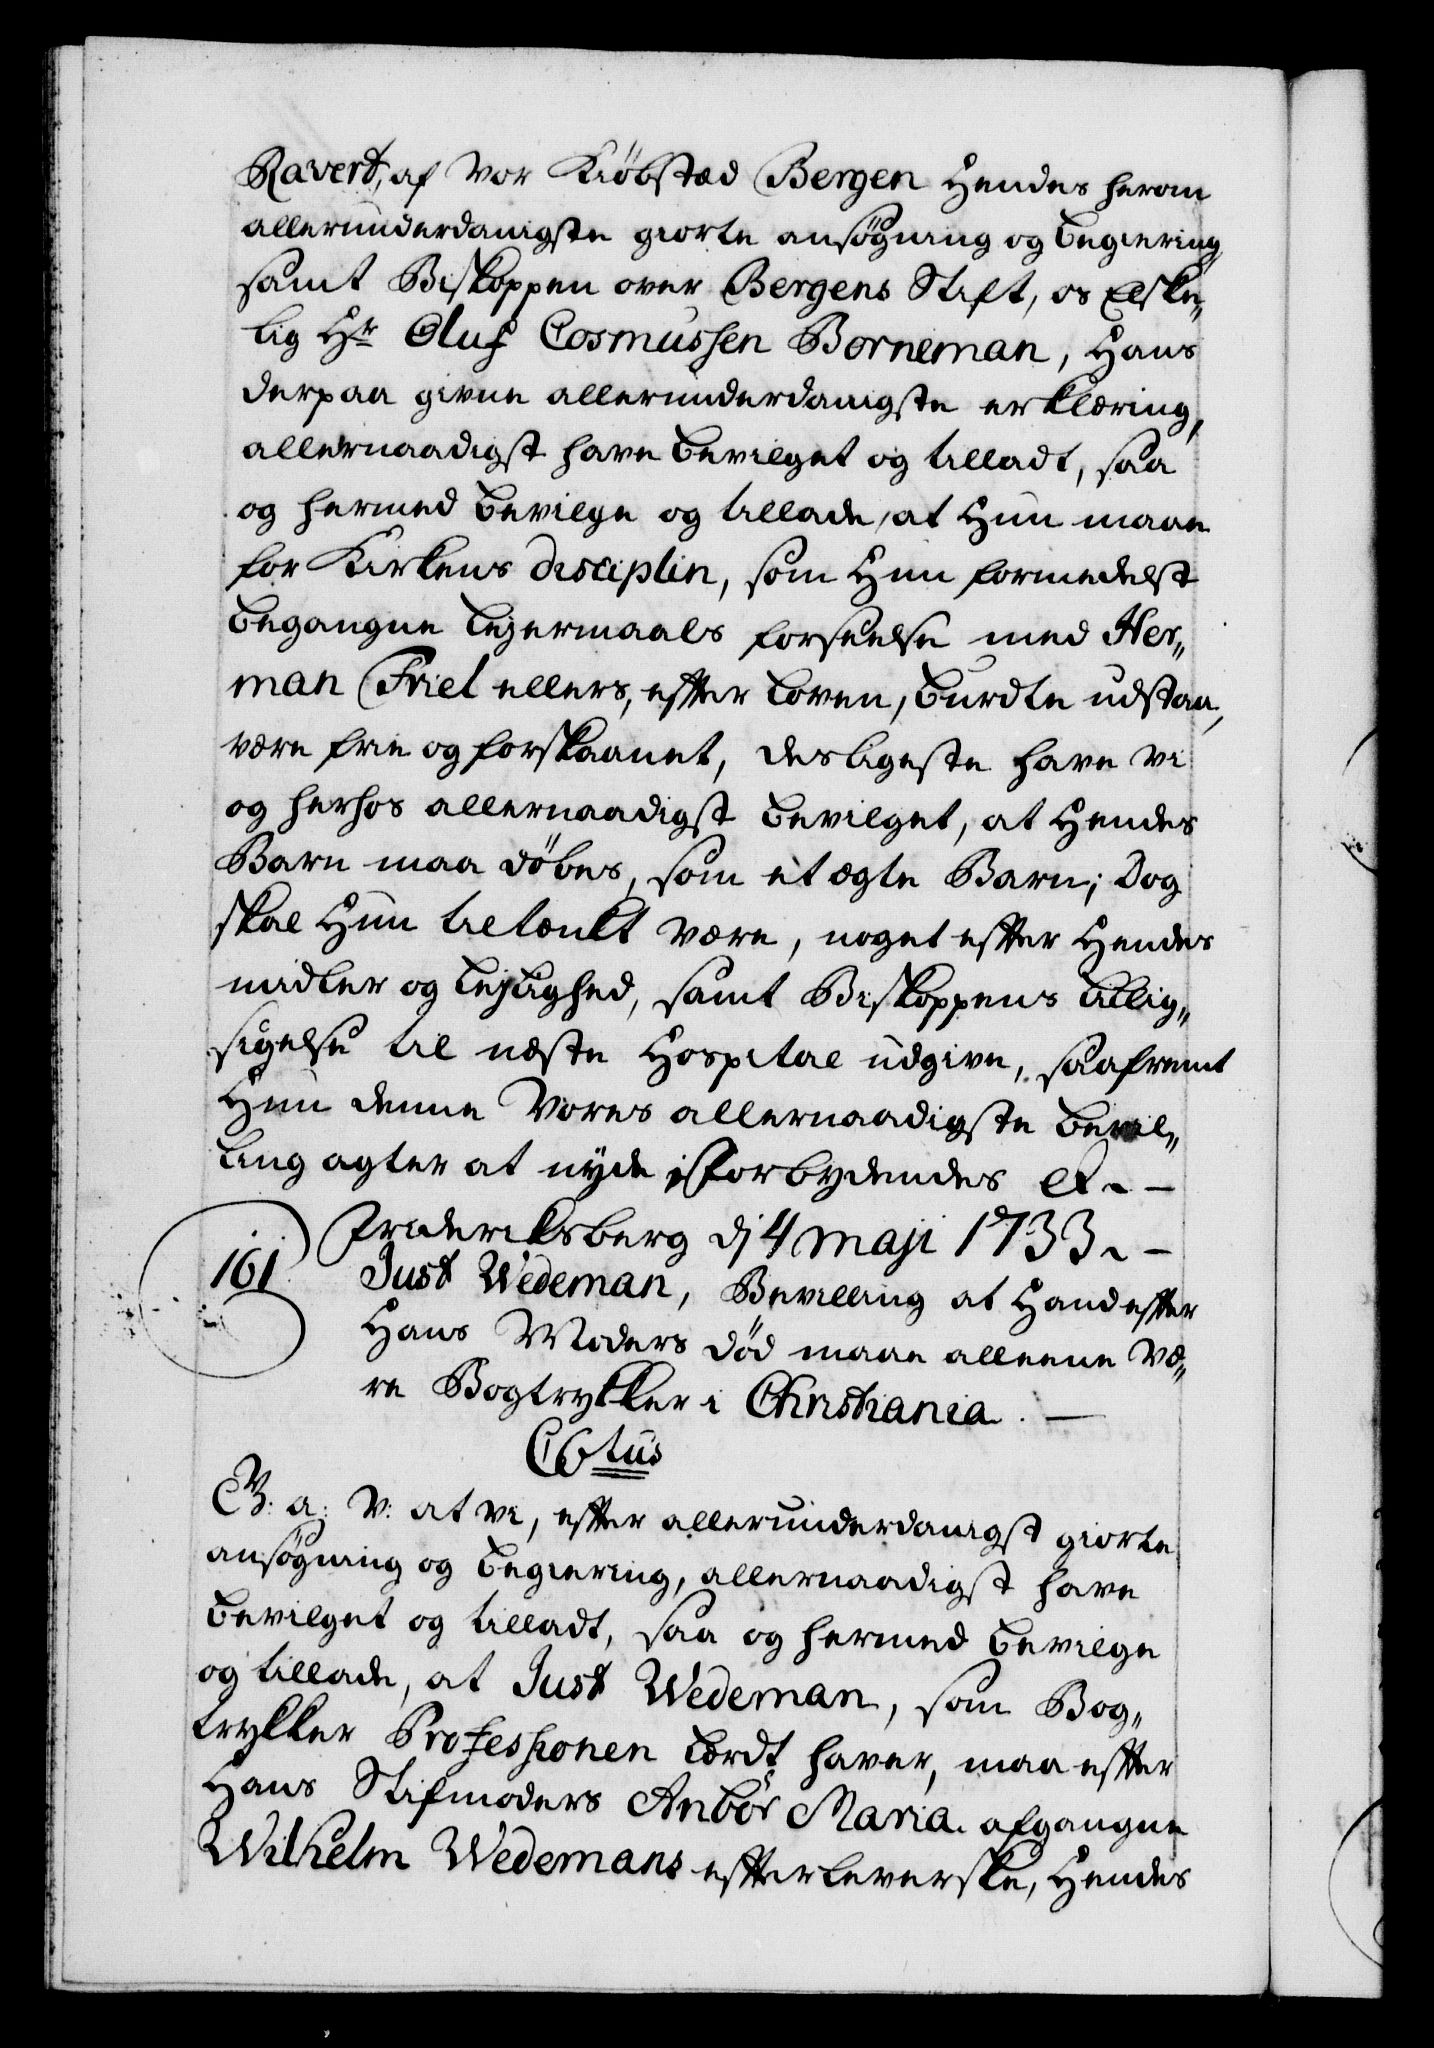 Ravert, af Vor Kiöbstæd Bergen Hendes herom
allerunderdanigste giorte ansøgning og begiering
samt Biskoppen over Bergens Stift, os Elske„
lig Hr Oluf Cosmussen Borneman, Hans
derpaa givne allerunderdanigste erklæring,
allernaadigst have bevilget og tilladt, saa
og hermed bevilge og tillade, at Hun maae
for Kirkens disciplin, som Hun formedelst
begangne lejermaals forseelse med Her„
man Friel ellers, efter loven, burdte udstaa,
være frie og forskaanet, desligeste have vi
og herhos allernaadigst bevilget, at Hendes
Barn maa döbes, som et ægte Barn; Dog
skal Hun tiltænkt være, noget efter Hendes
midler og lejlighed, samt Biskoppens tillig„
sigelse til næste Hospital udgive, saafremt
Hun denne Vores allernaadigste bevil„
ling agter at nyde, Forbydendes &. –
Friderichsberg dj 4 maji 1733. –
161 Just Wedeman, Bevilling at Hand efter
Hans Moders död maae alleene væ„
re Bogtrykker i Christiania. –
C6tus
G. V. a: V: at vi, efter allerunderdanigst giorte
ansøgning og begiering, allernaadigst have
bevilget og tilladt, saa og hermed bevilge
og tillade, at Just Wedeman, som Bog„
trykker Professionen lærdt haver, maa efter
Hans Stifmoders Anbör Maria afgangne
Wilhelm Wedemans efterleverske, Hendes